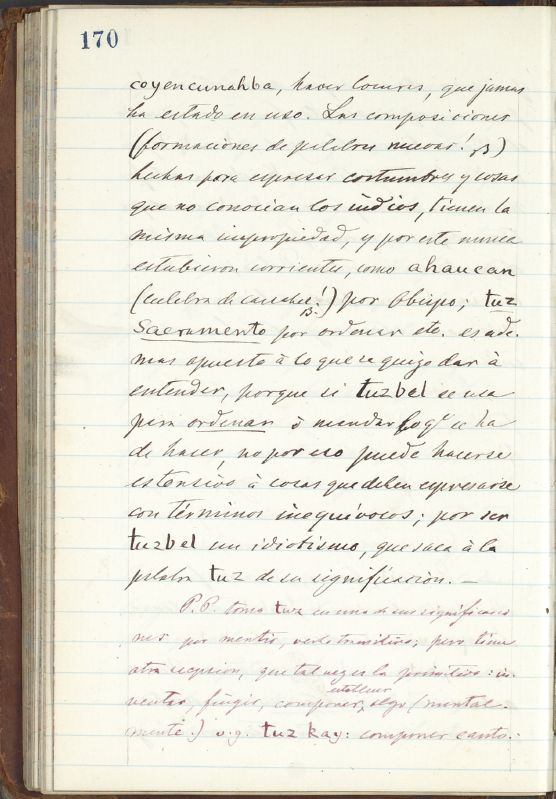 170
coyencunahba, hacer locuras, que jamas
ha estado en uso. Las composiciones
(formaciones de palabras nuevas!
hechas para espresar costumbres y cosas
que no conocian los indios, tienen la
misma impropiedad, y por esto nunca
estubieron corrientes, como ahaucan
(culebra de cascabel!) por Obispo; tuz
Sacramento por ordenar etc. es ade-
mas opuesto à lo que se quizo dar à
entender, porque si tuzbel se usa
para ordenar ò mandar lo qe se ha
de hacer, no por eso puede hacerse
estensivo à cosas que deben espresarse
con términos inequívocos; por ser
tuzbel un idiotismo, que saca à la
palabra tuz de su significacion. —
P. P. toma tuz en una de sus significacio
nes por mentir, verbo transitivo; pero tiene
otra acepsion, que tal vez es la primitiva: in-
ventar, fingir, componer, establecer algo (mental-
mente.) v.g. tuz kay: componer canto.